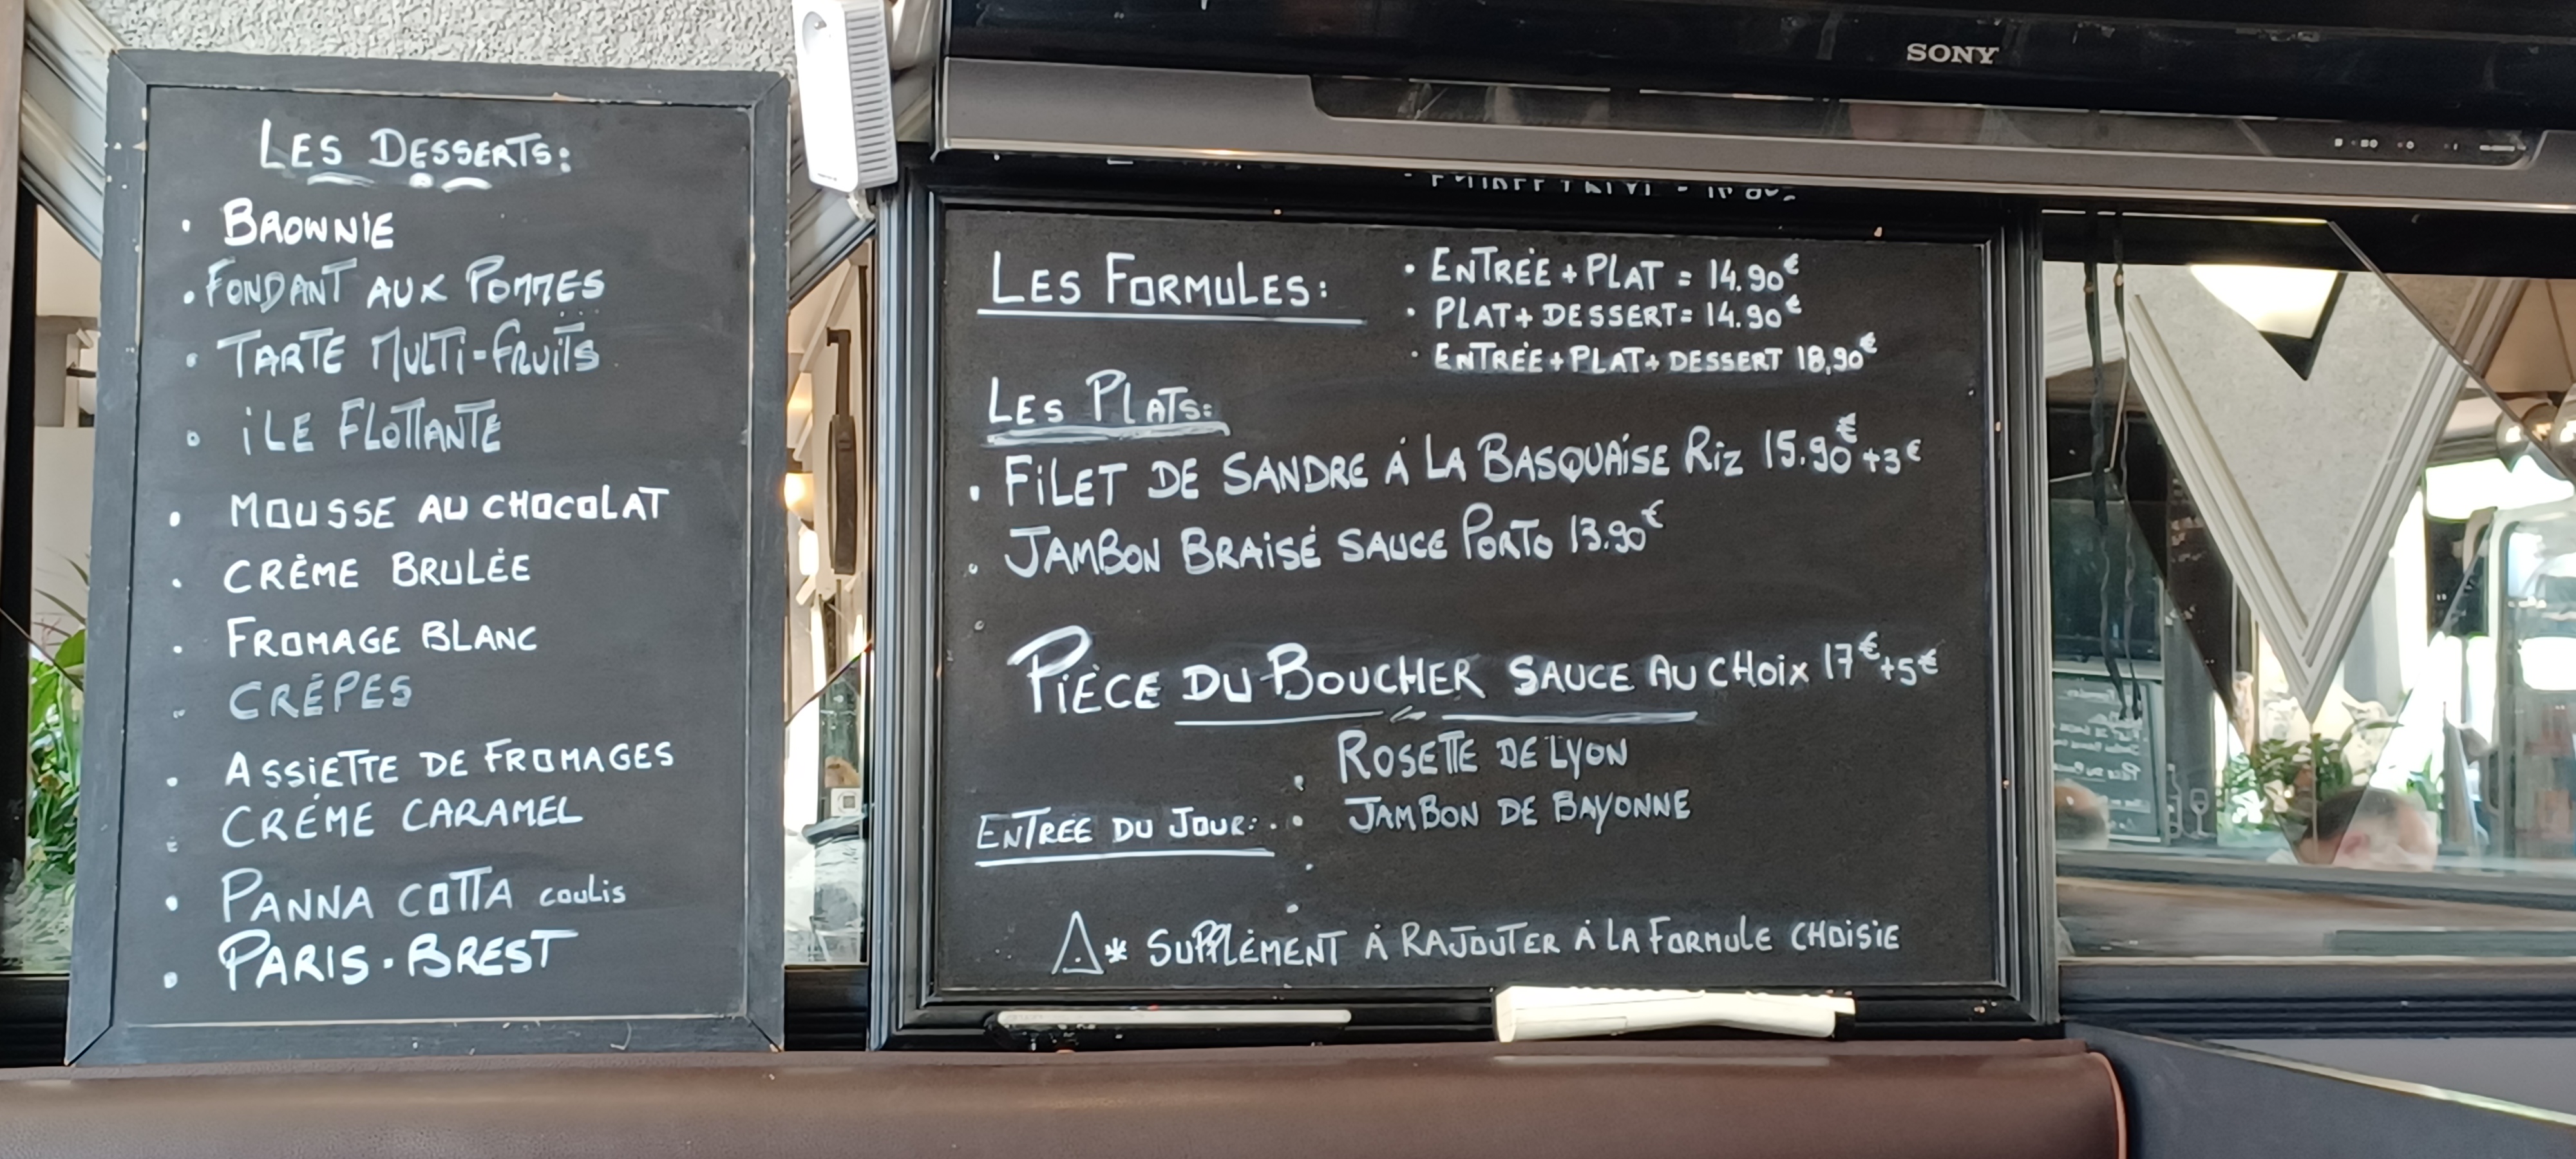 LES DESSERTS:
• BROWNIE
• FONDANT AUX POMMES
• TARTE MULTI-FRUITS
• iLE FLOTTANTE
• MOUSSE AU CHOCOLAT
• CRÈME BRULÉE
• FROMAGE BLANC
• CRÊPES
• ASSIETTE DE FROMAGES
• CRÉME CARAMEL
• PANNA COTTA coulis
• PARIS-BREST
SONY
LES FORMULES:
• ENTRÉE + PLAT = 14.90€
• PLAT + DESSERT = 14.90€
• ENTRÉE + PLAT + DESSERT 18,90€
LES PLATS:
• FILET DE SANDRE À LA BASQUAISE RIZ 15.90€ +3€
• JAMBON BRAISÉ SAUCE PORTO 13.90€
PIÈCE DU BOUCHER SAUCE AU CHOIX 17€ +5€
ENTRÉE DU JOUR:
• ROSETTE DE LYON
• JAMBON DE BAYONNE
⚠* SUPPLÉMENT À RAJOUTER À LA FORMULE CHOISIE